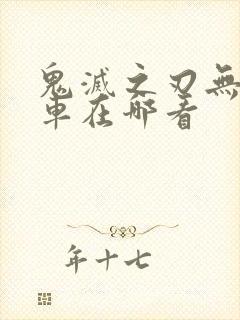 鬼滅之刃無
車在哪看
年十七